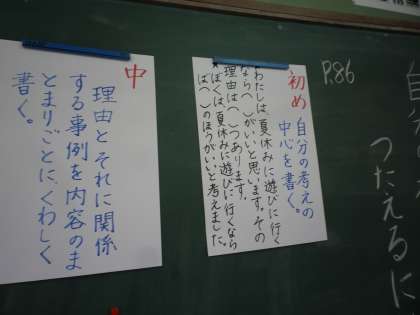 自分の
つたえるに
P.86
初め
自分の考えの
中心を書く。
わたしは、夏休みに遊びに行く
なら( )がいいと思います。その
理由は( )つあります。
★ぼくは、夏休みに遊びに行くなら
ば( )のほうがいいと考えました。
中
理由とそれに関係
する事例を内容のま
とまりごとに、くわしく
書く。